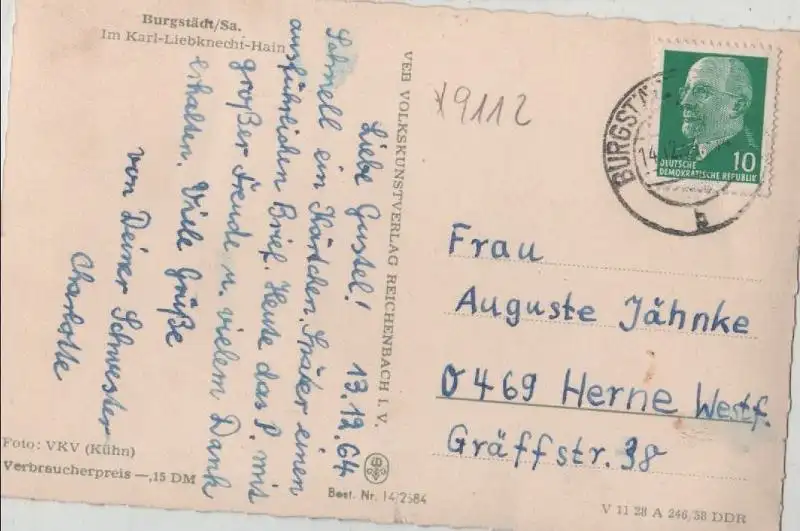 Burgstädt/Sa.
Im Karl-Liebknecht-Hain
Liebe Gustel! 13.12.64
Schnell ein Kärtchen. Später einen
ausführlichen Brief. Heute das P. mit
großer Freude u. vielem Dank
erhalten. Viele Grüße
von Deiner Schwester
Charlotte
Foto: VKV (Kühn)
Verbraucherpreis —,15 DM
VEB VOLKSKUNSTVERLAG REICHENBACH I. V.
Best. Nr. 14/2584
9112
BURGSTÄDT
14.12
b
10
DEUTSCHE
DEMOKRATISCHE REPUBLIK
Frau
Auguste Jähnke
0469 Herne Westf.
Gräffstr. 38
V 11 28 A 246/58 DDR